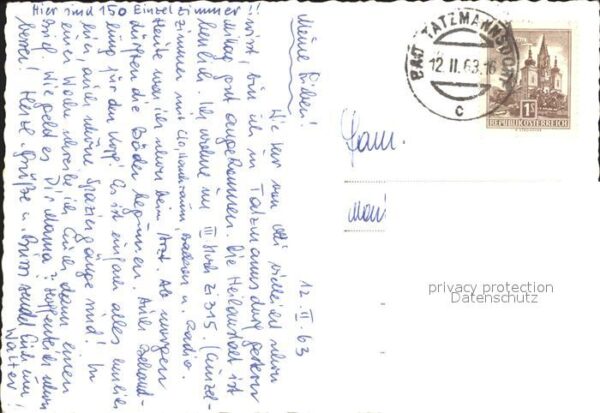 Hier sind 150 Einzelzimmer!!
12. II. 63
Meine Lieben!
Wie Ihr von vielleicht schon
wißt, bin ich in Tatzmannsdorf gestern
mittag gut angekommen. Die Heilanstalt ist
herrlich. Ich wohne im III Stock Zi 315. (Einzel-
zimmer mit u. Radio.
Heute war ich schon beim Arzt. Ab morgen
dürften die Bäder beginnen. Auch Behand-
lung für den Kopf. Es ist einfach alles
hier, auch schöne Spaziergänge sind! In
einer Woche schreibe ich Euch dann einen
Brief. Wie geht es Dir Mama? Hoffentlich schon
besser! Herzl. Grüße u. Bussi sendet Euch
Walter!
Fam.
BAD TATZMANNSDORF
12. II. 63. 16
c
1S
REPUBLIK ÖSTERREICH
privacy protection
Datenschutz